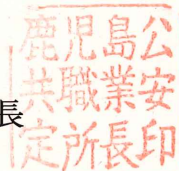 長
鹿児島公
共職業安
定所長印